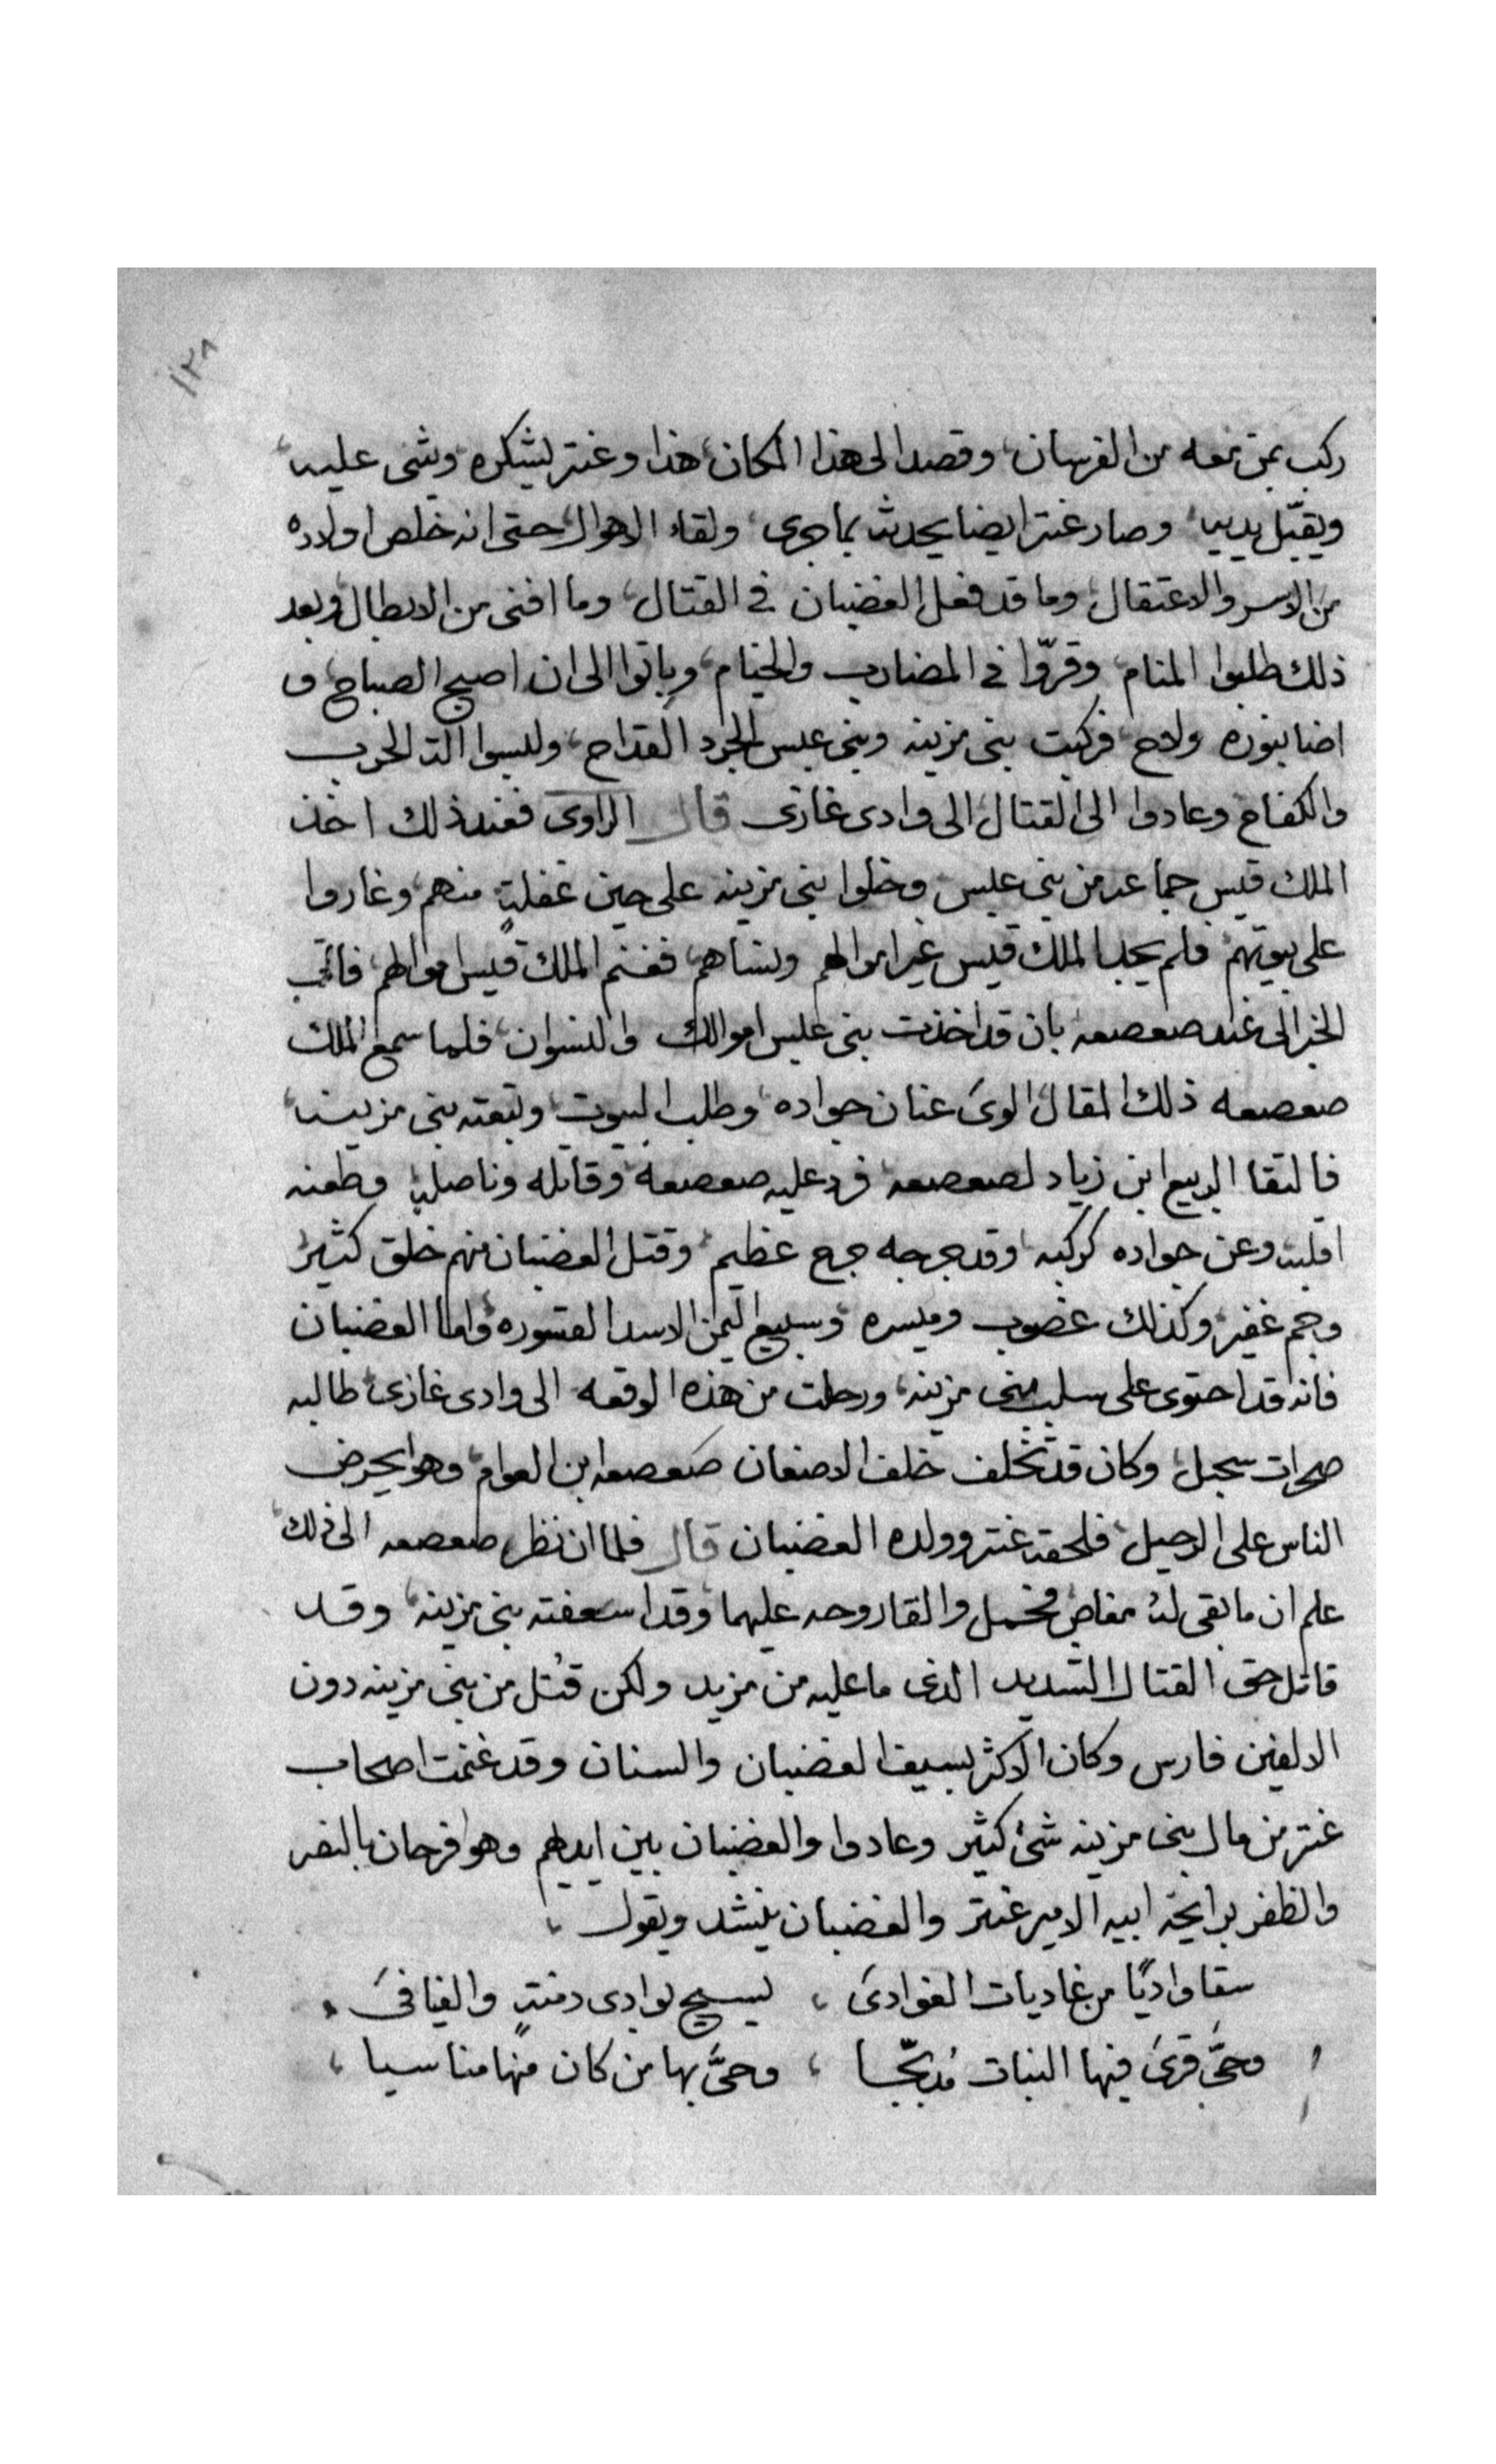 ١٢٨
ركب بمن معه من الفرسان، وقصد الى هذا المكان، هذا وعنتر يشكره ويثنى عليه،
ويقبّل يديه، وصار عنتر ايضا يحدثه بما جرى، ولقاء الاهوال، حتى انه خلص اولاده
من الاسر والاعتقال، وما قد فعل الغضبان فى القتال، وما افنى من الابطال، وبعد
ذلك طلبوا المنام، وقرّوا فى المضارب والخيام، وباتوا الى ان اصبح الصباح، و
اضا بنوره ولاح، فركبت بنى مزينه وبنى عبس الجرد القداح، ولبسوا الة الحرب
والكفاح، وعادوا الى القتال الى وادى غازى قال الراوى فعند ذلك اخذ
الملك قيس جماعه من بنى عبس وخلوا بنى مزينه على حين غفلةٍ منهم، وغاروا
على بيوتهم، فلم يجد الملك قيس غير اموالهم ونساهم، فغنم الملك قيس اموالهم، فاتى
الخبر الى عند صعصعه بان قد اخذت بنى عبس اموالك والنسوان، فلما سمع الملك
صعصعه ذلك المقال، الوى عنان جواده، وطلب البيوت، وتبعته بنى مزينه،
فالتقا الربيع ابن زياد لصعصعه، فرد عليه صعصعه، وقاتله وناصله، وطعنه
اقلبه، وعن جواده كركبه، وقد جرحه جرح عظيم، وقتل الغضبان منهم خلق كثير،
وجم غفير، وكذلك غضوب وميسره، وسبيع اليمن الاسد القسوره، واما الغضبان
فانه قد احتوى على سلب بنى مزينه، ورحلت من هذه الوقعه الى وادى غازى، طالبه
صحرات سجيل، وكان قد تخلف خلف الاضعان صعصعه ابن العوام، وهو يحرض
الناس على الرحيل، فلحقه عنتر وولده الغضبان قال فلما ان نظر صعصعه الى ذلك،
علم ان ما بقى له مفاص فحمل والقا روحه عليهما، وقد اسعفته بنى مزينه، وقد
قاتل حق القتال الشديد الذى ما عليه من مزيد ولكن قُتل من بنى مزينه دون
الالفين فارس وكان الاكثر بسيف الغضبان والسنان وقد غنمت اصحاب
عنتر من مال بنى مزينه شئ كثير وعادوا والغضبان بين ايديهم وهو فرحان بالنصر
والظفر برايحة ابيه الامير عنتر والغضبان ينشد ويقول،
سقا واديًا من غاديات الغوادى، ليسيح بوادى دمنةٍ والفيافى،
وحىّ قرى فيها النبات مُدبّجا، وحىَّ بها من كان منها مناسيا،